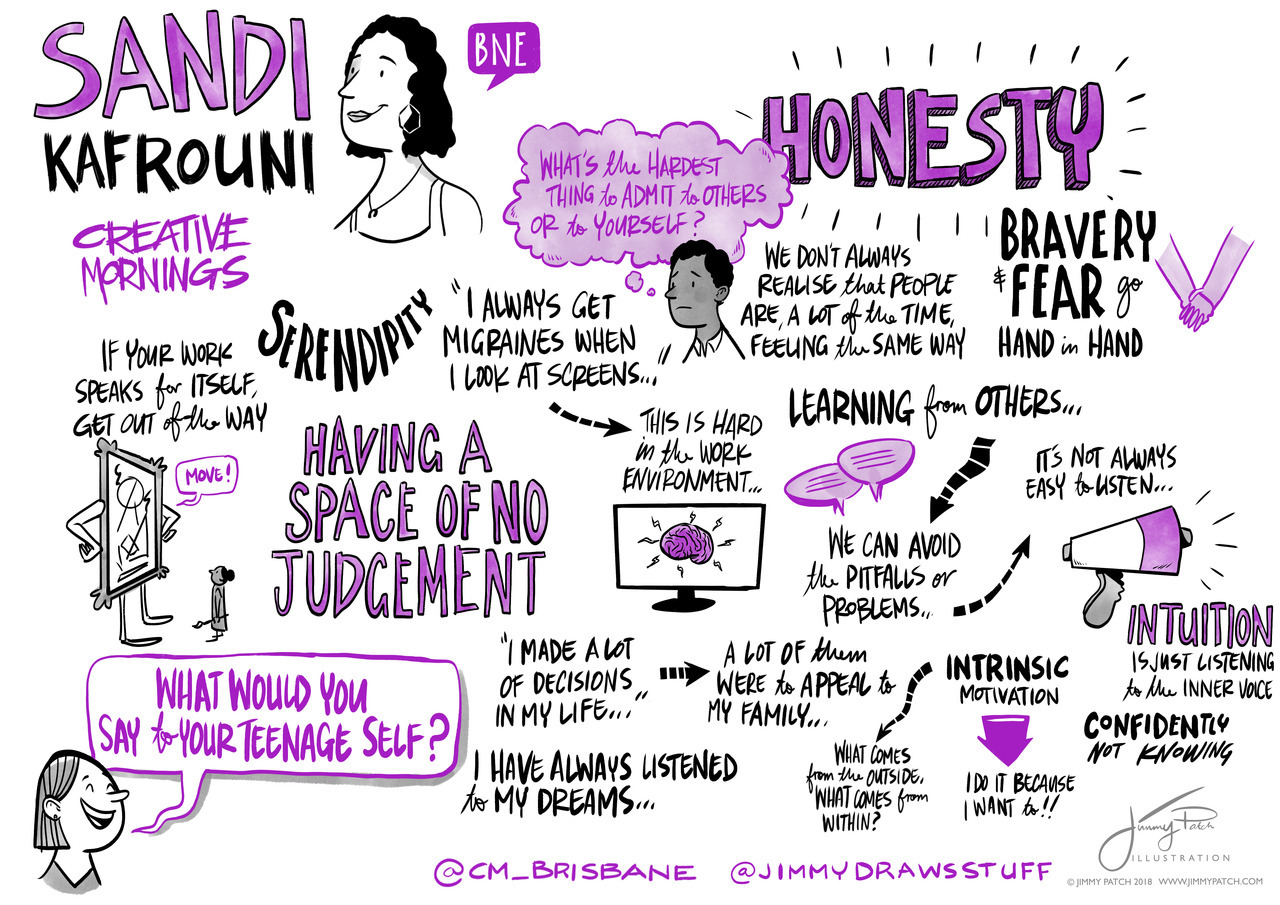 SANDI
KAFROUNI
BNE
CREATIVE
MORNINGS
HONESTY
WHAT'S the HARDEST
THING to ADMIT to OTHERS
OR to YOURSELF?
WE DON'T ALWAYS
REALISE that PEOPLE
ARE, A LOT of the TIME,
FEELING the SAME WAY
BRAVERY
& FEAR go
HAND in HAND
SERENDIPITY
"I ALWAYS GET
MIGRAINES WHEN
I LOOK AT SCREENS..."
IF YOUR WORK
SPEAKS for ITSELF,
GET OUT of the WAY
MOVE!
HAVING A
SPACE OF NO
JUDGEMENT
THIS IS HARD
in the WORK
ENVIRONMENT...
LEARNING from OTHERS...
WE CAN AVOID
the PITFALLS or
PROBLEMS...
IT'S NOT ALWAYS
EASY to LISTEN...
INTUITION
IS JUST LISTENING
to the INNER VOICE
WHAT WOULD YOU
SAY to YOUR TEENAGE SELF?
"I MADE A LOT
OF DECISIONS
IN MY LIFE..."
A LOT OF them
WERE to APPEAL to
MY FAMILY...
WHAT COMES
from the OUTSIDE,
WHAT COMES from
WITHIN?
INTRINSIC
MOTIVATION
I DO IT BECAUSE
I WANT to!!
CONFIDENTLY
NOT KNOWING
I HAVE ALWAYS LISTENED
to MY DREAMS...
@CM_BRISBANE @JIMMYDRAWSSTUFF
Jimmy Patch
ILLUSTRATION
© JIMMY PATCH 2018 WWW.JIMMYPATCH.COM